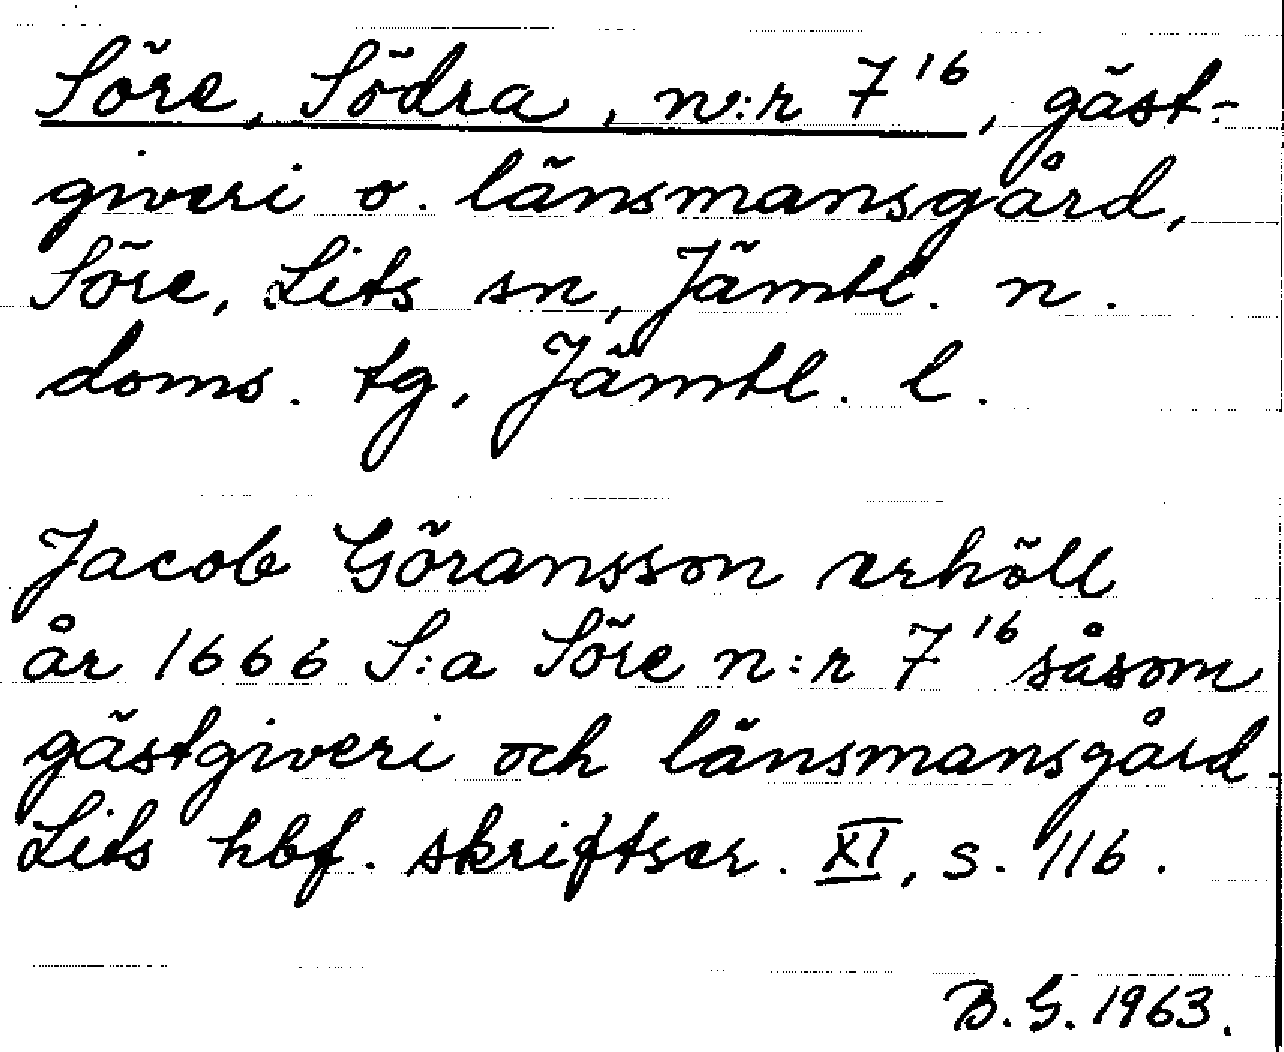 Söre, Södra, n:r 7¹⁶, gäst-
giveri o. länsmansgård,
Söre, Lits sn, Jämtl. n.
doms. tg, Jämtl. l.
Jacob Göransson erhöll
år 1666 S:a Söre n:r 7¹⁶ såsom
gästgiveri och länsmansgård.
Lits hbf. skriftser. XI, s. 116.
B.G. 1963.